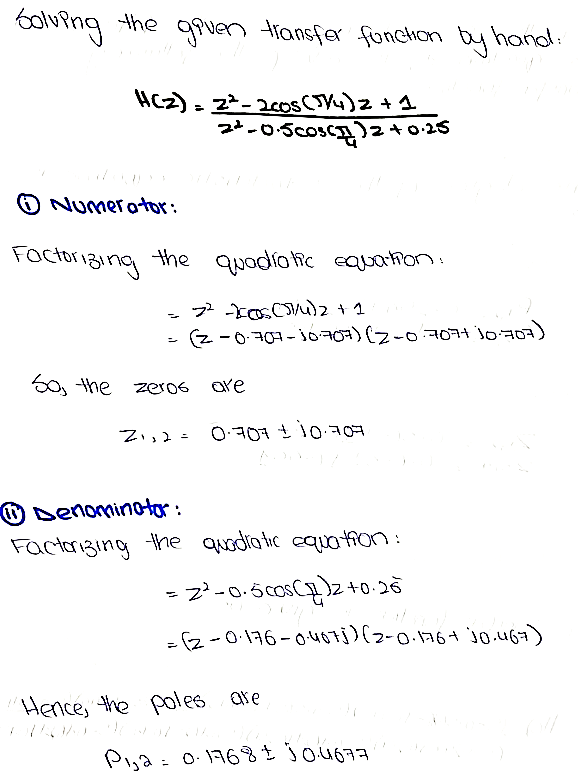 Solving the given transfer function by hand:
H(z) = z² - 2cos(π/4)z + 1
z² - 0.5cos(π/4)z + 0.25
(i) Numerator:
Factorizing the quadratic equation:
= z² - 2cos(π/4)z + 1
= (z - 0.707 - j0.707)(z - 0.707 + j0.707)
So, the zeros are
Z₁,₂ = 0.707 ± j0.707
(ii) Denominator:
Factorizing the quadratic equation:
= z² - 0.5cos(π/4)z + 0.25
= (z - 0.176 - 0.467j)(z - 0.176 + j0.467)
Hence, the poles are
P₁,₂ = 0.1768 ± j0.4677